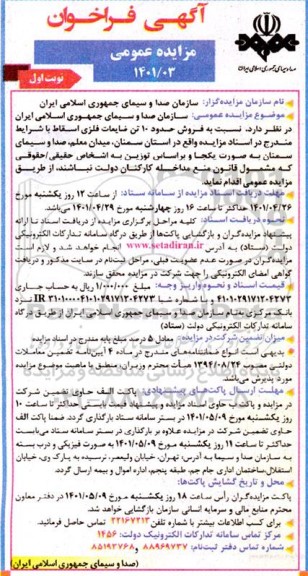 آگهی فراخوان
مزایده عمومی
۱۴۰۱/۰۳
نوبت اول
صدا و سیمای جمهوری اسلامی ایران
نام سازمان مزایده‌گزار: سازمان صدا و سیمای جمهوری اسلامی ایران
موضوع مزایده عمومی: سازمان صدا و سیمای جمهوری اسلامی ایران
در نظر دارد، نسبت به فروش حدود ۱۰ تن ضایعات فلزی اسقاط با شرایط
مندرج در اسناد مزایده واقع در استان سمنان، میدان معلم، صدا و سیمای
سمنان به صورت یکجا و براساس توزین به اشخاص حقیقی/حقوقی
که مشمول قانون منع مداخله کارکنان دولت نباشند، از طریق
مزایده عمومی اقدام نماید.
مهلت دریافت اسناد مزایده از سامانه ستاد: از ساعت ۱۲ روز یکشنبه مورخ
۱۴۰۱/۰۴/۲۶ حداکثر تا ساعت ۱۶ روز چهارشنبه مورخ ۱۴۰۱/۰۴/۲۹ می‌باشد.
نحوه دریافت اسناد: کلیه مراحل برگزاری مزایده از دریافت اسناد تا ارائه
پیشنهاد مزایده‌گران و بازگشایی پاکت‌ها از طریق درگاه سامانه تدارکات الکترونیکی
دولت (ستاد) به آدرس www.setadiran.ir انجام خواهد شد و لازم است
مزایده‌گران در صورت عدم عضویت قبلی، مراحل ثبت‌نام در سایت مذکور و دریافت
گواهی امضای الکترونیکی را جهت شرکت در مزایده محقق سازند.
قیمت اسناد و نحوه واریز وجه: مبلغ ۱/۰۰۰/۰۰۰ ریال به حساب جاری
۴۱۰۱۰۲۹۱۷۱۲۰۴۲۷۳ با شماره شبا IR
بانک مرکزی به نام سازمان صدا و سیمای جمهوری اسلامی ایران از طریق درگاه
سامانه تدارکات الکترونیکی دولت (ستاد)
میزان تضمین شرکت در مزایده: معادل ۵ درصد مبلغ پایه مندرج در اسناد مزایده
بدیهی است انواع ضمانتنامه‌های مندرج در ماده ۴ آیین‌نامه تضمین معاملات
دولتی مصوب هیأت محترم وزیران، منطبق با ماهیت موضوع مزایده
مورد پذیرش می‌باشد.
مهلت ارسال پاکت‌های پیشنهادی: پاکت الف حاوی تضمین شرکت
در مزایده و پاکت ب حاوی اسناد مزایده و پیشنهاد قیمت حداکثر تا ساعت ۱۰
روز یکشنبه مورخ ۱۴۰۱/۰۵/۰۹ در بستر سامانه ستاد بارگذاری گردد. ضمنا پاکت الف
حاوی تضمین شرکت در مزایده علاوه بر بارگذاری در بستر سامانه ستاد می‌بایست
حداکثر تا ساعت ۱۱ روز یکشنبه مورخ ۱۴۰۱/۰۵/۰۹ به صورت فیزیکی و درب بسته
به سازمان صدا و سیما به آدرس: تهران، خیابان ولیعصر، نرسیده به پارک وی، خیابان
استقلال،ساختمان اداری جام جم، طبقه پنجم، اداره اموال و بیمه ارسال گردد.
محل و تاریخ گشایش پاکت‌ها:
پاکت مزایده‌گران رأس ساعت ۱۸ روز یکشنبه مورخ ۱۴۰۱/۰۵/۰۹ در دفتر معاون
محترم منابع مالی و سرمایه انسانی سازمان بازگشایی خواهد شد.
برای کسب اطلاعات بیشتر با شماره تلفن ۲۲۱۶۷۲۱۳ تماس حاصل فرمائید.
مرکز تماس سامانه تدارکات الکترونیک دولت: ۱۴۵۶
شماره تماس دفتر ثبت‌نام: ۸۸۹۶۹۷۳۷ و ۸۵۱۹۳۷۶۸
(صدا و سیمای جمهوری اسلامی ایران)